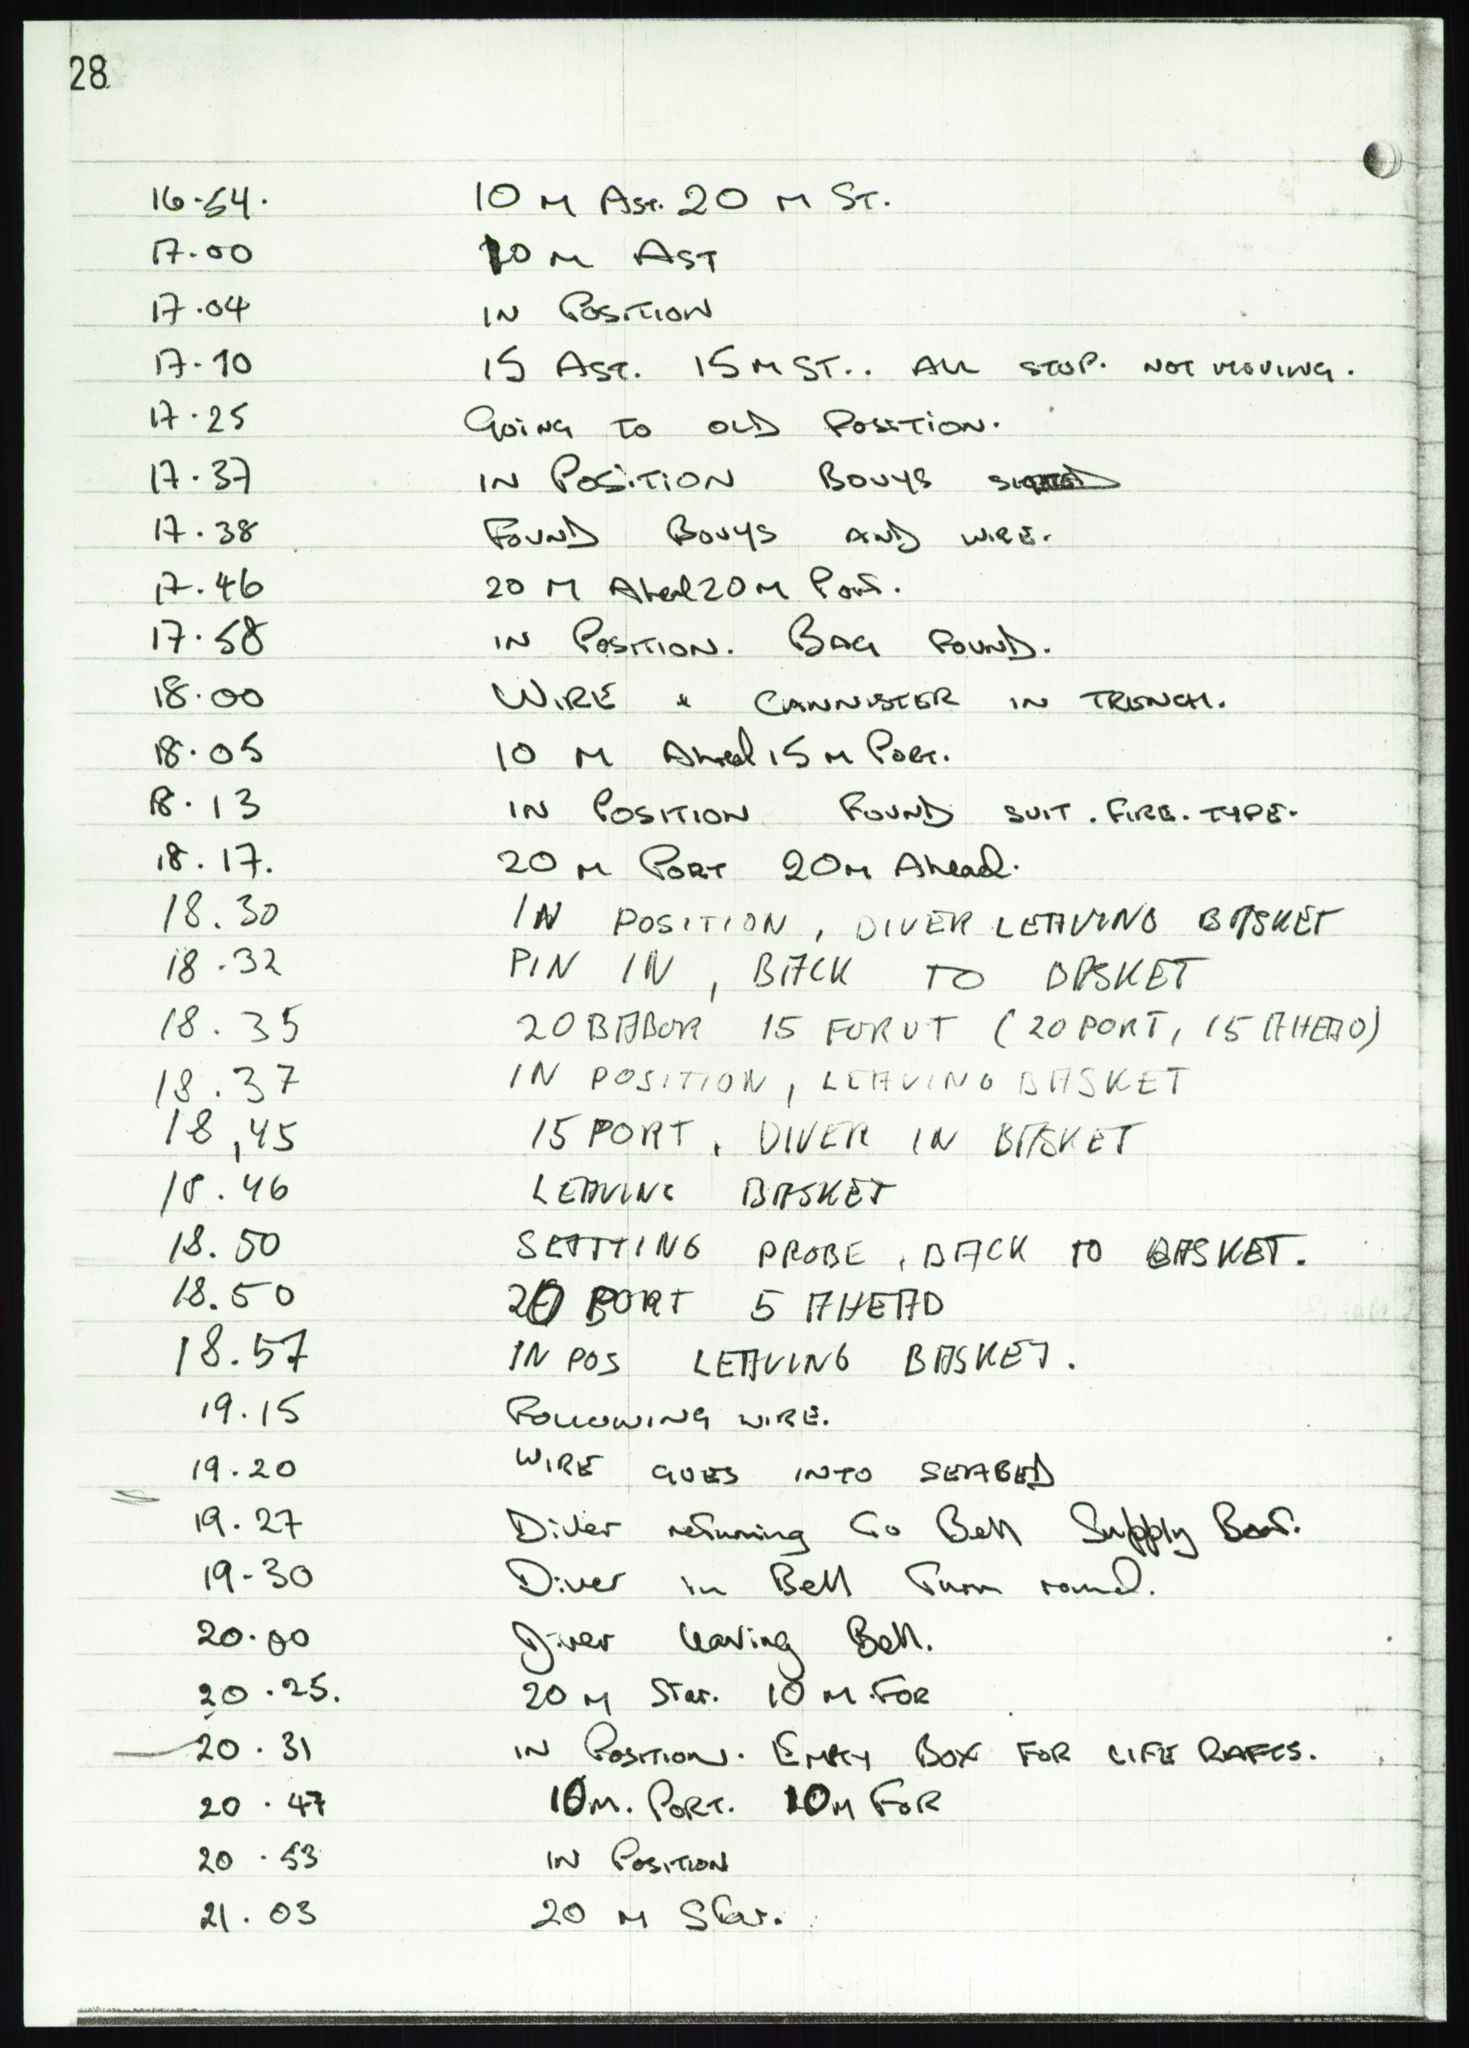 28
16.54. 10 M AST. 20 M ST.
17.00 10 M AST
17.04 IN POSITION
17.10 15 AST. 15 M ST.. ALL STOP. NOT MOVING.
17.25 GOING TO OLD POSITION.
17.37 IN POSITION BOUYS
17.38 FOUND BOUYS AND WIRE.
17.46 20 M Ahead 20 M Port.
17.58 IN POSITION. BAG FOUND.
18.00 WIRE & CANNISTER IN TRENCH.
18.05 10 M Ahead 15 M PORT.
18.13 IN POSITION FOUND SUIT. FIRE. TYPE.
18.17. 20 M PORT 20 M Ahead.
18.30 IN POSITION, DIVER LEAVING BASKET
18.32 PIN IN, BACK TO BASKET
18.35 20 BABOR 15 FORUT (20 PORT, 15 AHEAD)
18.37 IN POSITION, LEAVING BASKET
18,45 15 PORT, DIVER IN BASKET
18.46 LEAVING BASKET
18.50 SETTING PROBE, BACK TO BASKET.
18.50 20 PORT 5 AHEAD
18.57 IN POS LEAVING BASKET.
19.15 FOLLOWING WIRE.
19.20 WIRE GOES INTO SEABED
19.27 Diver returning to Bell Supply Boat.
19-30 Diver in Bell Turn round.
20.00 Diver leaving Bell.
20.25. 20 M Star. 10 M. FOR
20.31 IN POSITION. EMPTY BOX FOR LIFE RAFTS.
20.47 10 M. PORT. 10 M FOR
20.53 IN POSITION
21.03 20 M Star.